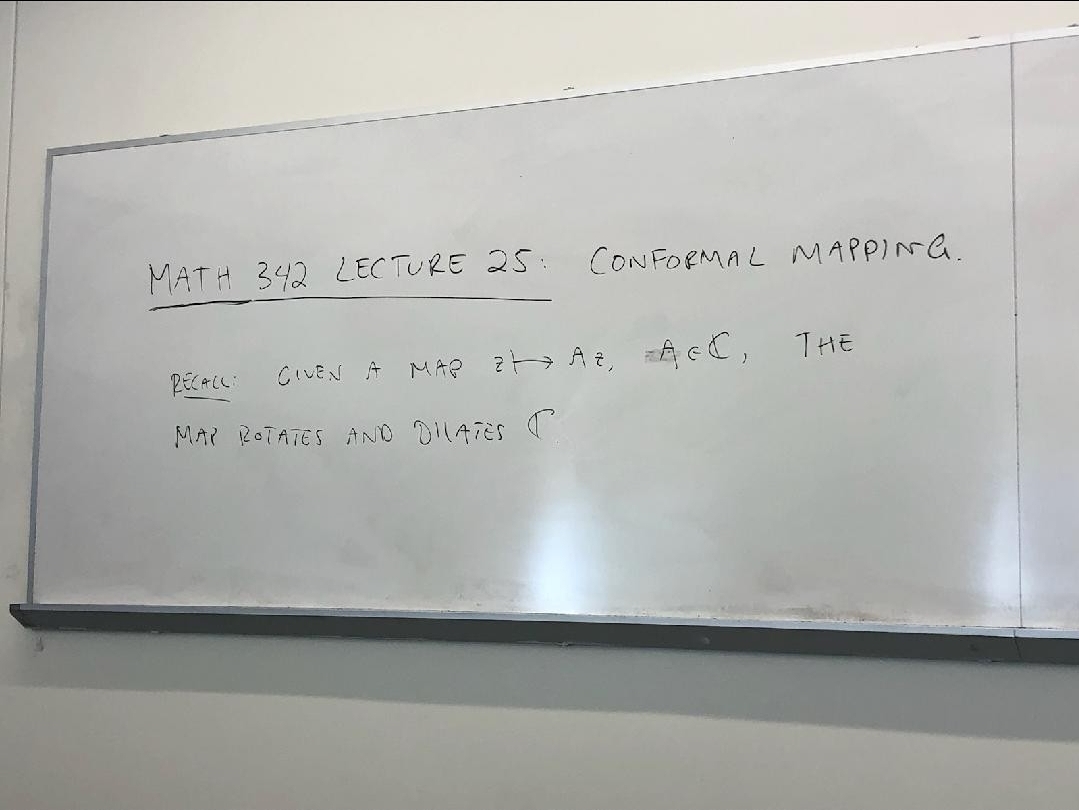 MATH 342 LECTURE 25: CONFORMAL MAPPING.
RECALL: GIVEN A MAP z ↦ Az, A ∈ ℂ, THE
MAP ROTATES AND DILATES ℂ.